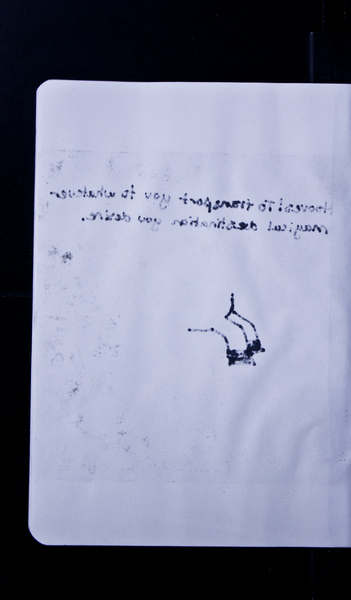 Hooves! To transport you to whatever
magical destination you desire.